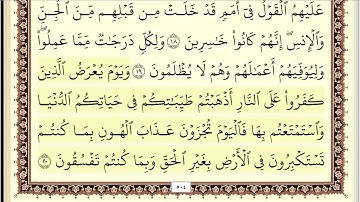 عَلَيْهِمُ ٱلْقَوْلُ فِىٓ أُمَمٍ قَدْ خَلَتْ مِن قَبْلِهِم مِّنَ ٱلْجِنِّ
وَٱلْإِنسِ ۖ إِنَّهُمْ كَانُوا۟ خَٰسِرِينَ ١٨ وَلِكُلٍّ دَرَجَٰتٌ مِّمَّا عَمِلُوا۟ ۖ
وَلِيُوَفِّيَهُمْ أَعْمَٰلَهُمْ وَهُمْ لَا يُظْلَمُونَ ١٩ وَيَوْمَ يُعْرَضُ ٱلَّذِينَ
كَفَرُوا۟ عَلَى ٱلنَّارِ أَذْهَبْتُمْ طَيِّبَٰتِكُمْ فِى حَيَاتِكُمُ ٱلدُّنْيَا
وَٱسْتَمْتَعْتُم بِهَا فَٱلْيَوْمَ تُجْزَوْنَ عَذَابَ ٱلْهُونِ بِمَا كُنتُمْ
تَسْتَكْبِرُونَ فِى ٱلْأَرْضِ بِغَيْرِ ٱلْحَقِّ وَبِمَا كُنتُمْ تَفْسُقُونَ ٢٠
٥٠٤